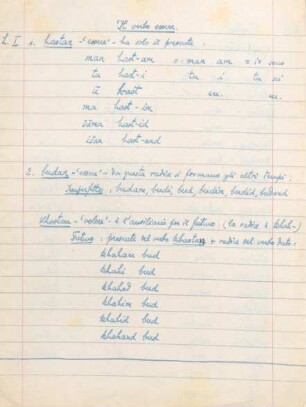 Il verbo essere.
L. I 1. hastan - "essere" - ha solo il presente:
man hast-am o: man am = io sono
tu hast-i tu i tu sei
ū hast ecc. ecc.
mā hast-im
šumā hast-id
išān hast-and
2. budan - "essere" - Da questa radice si formano gli altri tempi:
Imperfetto: budam, budi, bud, budim, budid, budand
khastan - "volere" - è l'ausiliario per il futuro (la radice è khah-)
Futuro: presente del verbo khastan + radice del verbo dato:
khaham bud
khahi bud
khahad bud
khahim bud
khahid bud
khahand bud